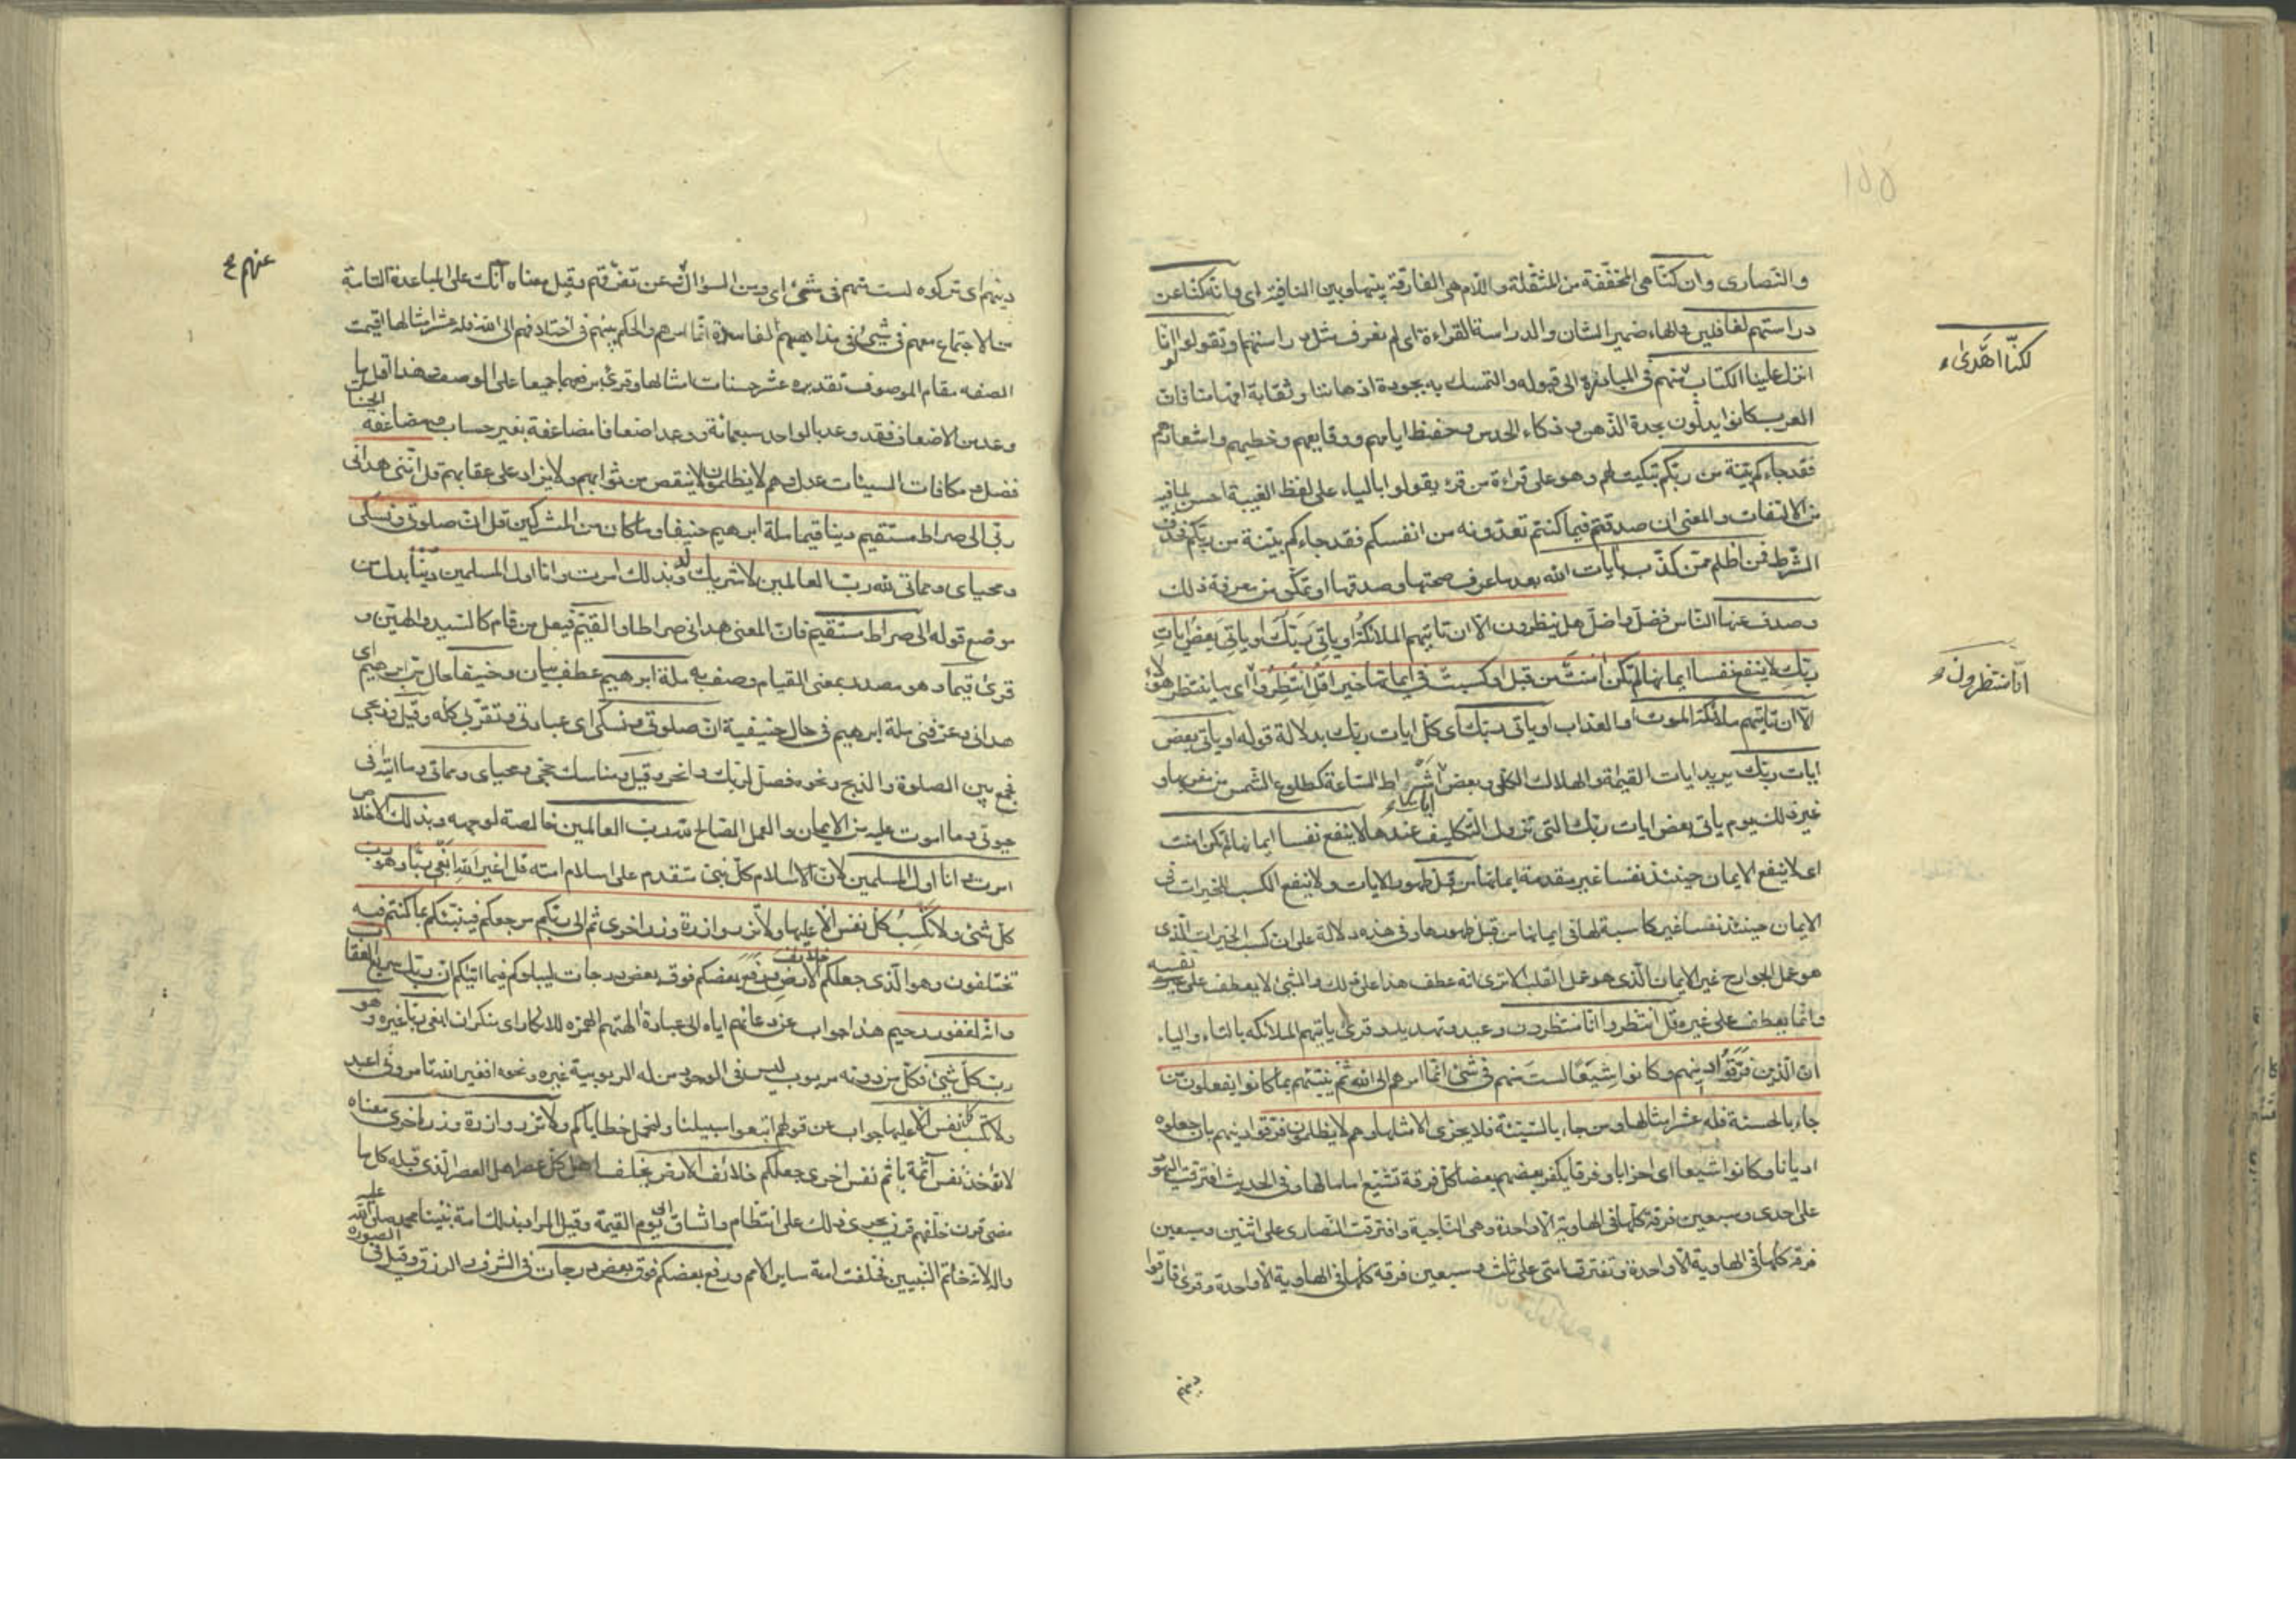 ١٥٥
والنصارى وان كنا هي المخففة من المثقلة واللام هي الفارقة بينها وبين النافية اى وانه كنا عن
دراستهم لغافلين والهاء ضمير الشان والدراسة القراءة اى لم نعرف مثل دراستهم وتقولوا لو انا
لكنّا اهدى
انزل علينا الكتاب منهم في المبادرة الى قبوله والتمسك به بجودة اذهاننا وثقابة افهامنا فان
العرب كانوا يدلّون بحدة الذهن وذكاء الحدس وحفظ ايامهم ووقايعهم وخطبهم واشعارهم
فقد جاءكم بينة من ربكم تبكيت لهم وهو على قراءة من قرء يقولوا بالياء على لفظ الغيبة احسن لما فيه
من الالتفات والمعنى ان صدقتم فيما كنتم تعدونه من انفسكم فقد جاءكم بينة من ربكم فحذف
الشرط فمن اظلم ممن كذب بايات الله بعد ما عرف صحتها وصدقها او تمكن من معرفة ذلك
وصدف عنها الناس فضل واضل هل ينظرون الا ان تاتيهم الملائكة او ياتي ربك او ياتي بعض ايات
ربك لا ينفع نفسا ايمانها لم تكن امنت من قبل او كسبت في ايمانها خيرا قل انتظروا اى ما ينتظر هؤلاء
انا منتظرون
الا ان تاتيهم ملائكة الموت او العذاب او ياتى ربك اى كل ايات ربك بدلالة قوله او ياتى بعض
ايات ربك يريد ايات القيمة والهلاك الكلى وبعض اشراط الساعة كطلوع الشمس من مغربها و
غير ذلك يوم ياتى بعض ايات ربك التى تزول التكليف عندها لا ينفع نفسا ايمانها لم تكن امنت
اى لا ينفع الايمان حينئذ نفسا غير مقدمة ايمانها من قبل ظهور الايات ولا ينفع الكسب للخيرات فى
الايمان حينئذ نفسا غير كاسبة لها فى ايمانها من قبل ظهورها وفى هذه دلالة على ان كسب الخيرات الذى
هو عمل الجوارح غير الايمان الذى هو عمل القلب الا ترى انه عطف هذا على ذلك والشئ لا يعطف على نفسه
وانما يعطف على غيره قل انتظروا انا منتظرون وعيد وتهديد وقرئ ياتيهم الملائكه بالتاء والياء
ان الذين فرقوا دينهم وكانوا شيعا لست منهم فى شئ انما امرهم الى الله ثم ينبئهم بما كانوا يفعلون من
جاء بالحسنة فله عشر امثالها ومن جاء بالسيئة فلا يجزى الا مثلها وهم لا يظلمون فرقوا دينهم بان جعلوه
اديانا وكانوا شيعا اى احزابا وفرقا يكفر بعضهم بعضا كل فرقة تشيع اماما لها وفى الحديث افترقت اليهود
على احدى وسبعين فرقة كلها فى الهاوية الا واحدة وهى الناجية وافترقت النصارى على اثنين وسبعين
فرقة كلها فى الهاوية الا واحدة وتفترق امتى على ثلث وسبعين فرقه كلها فى الهاوية الا واحدة وقرئ فارقوا
دينهم
دينهم اى تركوه لست منهم فى شئ اى من السؤال عن تفرقهم وقيل معناه انك على المباعدة التامة
عنهم
من الاجتماع معهم فى شئ من مذاهبهم الفاسدة انما امرهم والحكم بينهم فى اختلافهم الى الله فله عشر امثالها اقيمت
الصفه مقام الموصوف تقديره عشر حسنات امثالها وقرئ برفعهما جميعا على الوصف وهذا اقل ما
وعد من الاضعاف فقد وعد بالواحد سبعمائة ووعد اضعافا مضاعفة بغير حساب ومضاعفه الحسنات
فضل ومكافات السيئات عدل وهم لا يظلمون لا ينقص من ثوابهم ولا يزاد على عقابهم قل اننى هدانى
ربى الى صراط مستقيم دينا قيما ملة ابرهيم حنيفا وما كان من المشركين قل ان صلوتى ونسكى
ومحياى ومماتى لله رب العالمين لا شريك له وبذلك امرت وانا اول المسلمين دينا بدل من
موضع قوله الى صراط مستقيم فان المعنى هدانى صراطا والقيم فيعل من قام كالسيد والهين و
قرئ قيما وهو مصدر بمعنى القيام وصف به ملة ابرهيم عطف بيان وحنيفا حال من ابرهيم اى
هدانى وعرفنى ملة ابرهيم فى حال حنيفية ان صلوتى ونسكى اى عبادتى وتقربى كله وقيل وذبحى
فجمع بين الصلوة والذبح ونحوه فصل لربك وانحر وقيل ومناسك حجى ومحياى ومماتى وما اتيته فى
حيوتى وما اموت عليه من الايمان والعمل الصالح لله رب العالمين خالصة لوجهه وبذلك الاخلاص
امرت وانا اول المسلمين لان الاسلام كل نبى متقدم على اسلام امته قل اغير الله ابغى ربا وهو رب
كل شئ ولا تكسب كل نفس الا عليها ولا تزر وازرة وزر اخرى ثم الى ربكم مرجعكم فينبئكم بما كنتم فيه
تختلفون وهو الذى جعلكم خلائف الارض ورفع بعضكم فوق بعض درجات ليبلوكم فيما اتيكم ان ربك سريع العقاب
وانه لغفور رحيم هذا جواب عن دعائهم اياه الى عبادة الهتهم والهمزه للانكار اى منكر ان ابغى ربا غيره وهو
رب كل شئ فكل من دونه مربوب ليس فى الوجود من له الربوبية غيره ونحوه افغير الله تامرونى اعبد
ولا تكسب كل نفس الا عليها جواب عن قولهم اتبعوا سبيلنا ولنحمل خطاياكم ولا تزر وازرة وزر اخرى معناه
لا تؤخذ نفس آثمة باثم نفس اخرى جعلكم خلائف الارض يخلف اهل كل عصر اهل العصر الذى قبله كل ما
مضى قرن خلفهم قرن يجرى ذلك على انتظام واتساق الى يوم القيمة وقيل المراد بذلك امة نبينا محمد صلى الله عليه
واله لانه خاتم النبيين فخلفت امته ساير الامم ورفع بعضكم فوق بعض درجات فى الشرف والرزق وقيل فى الصورة